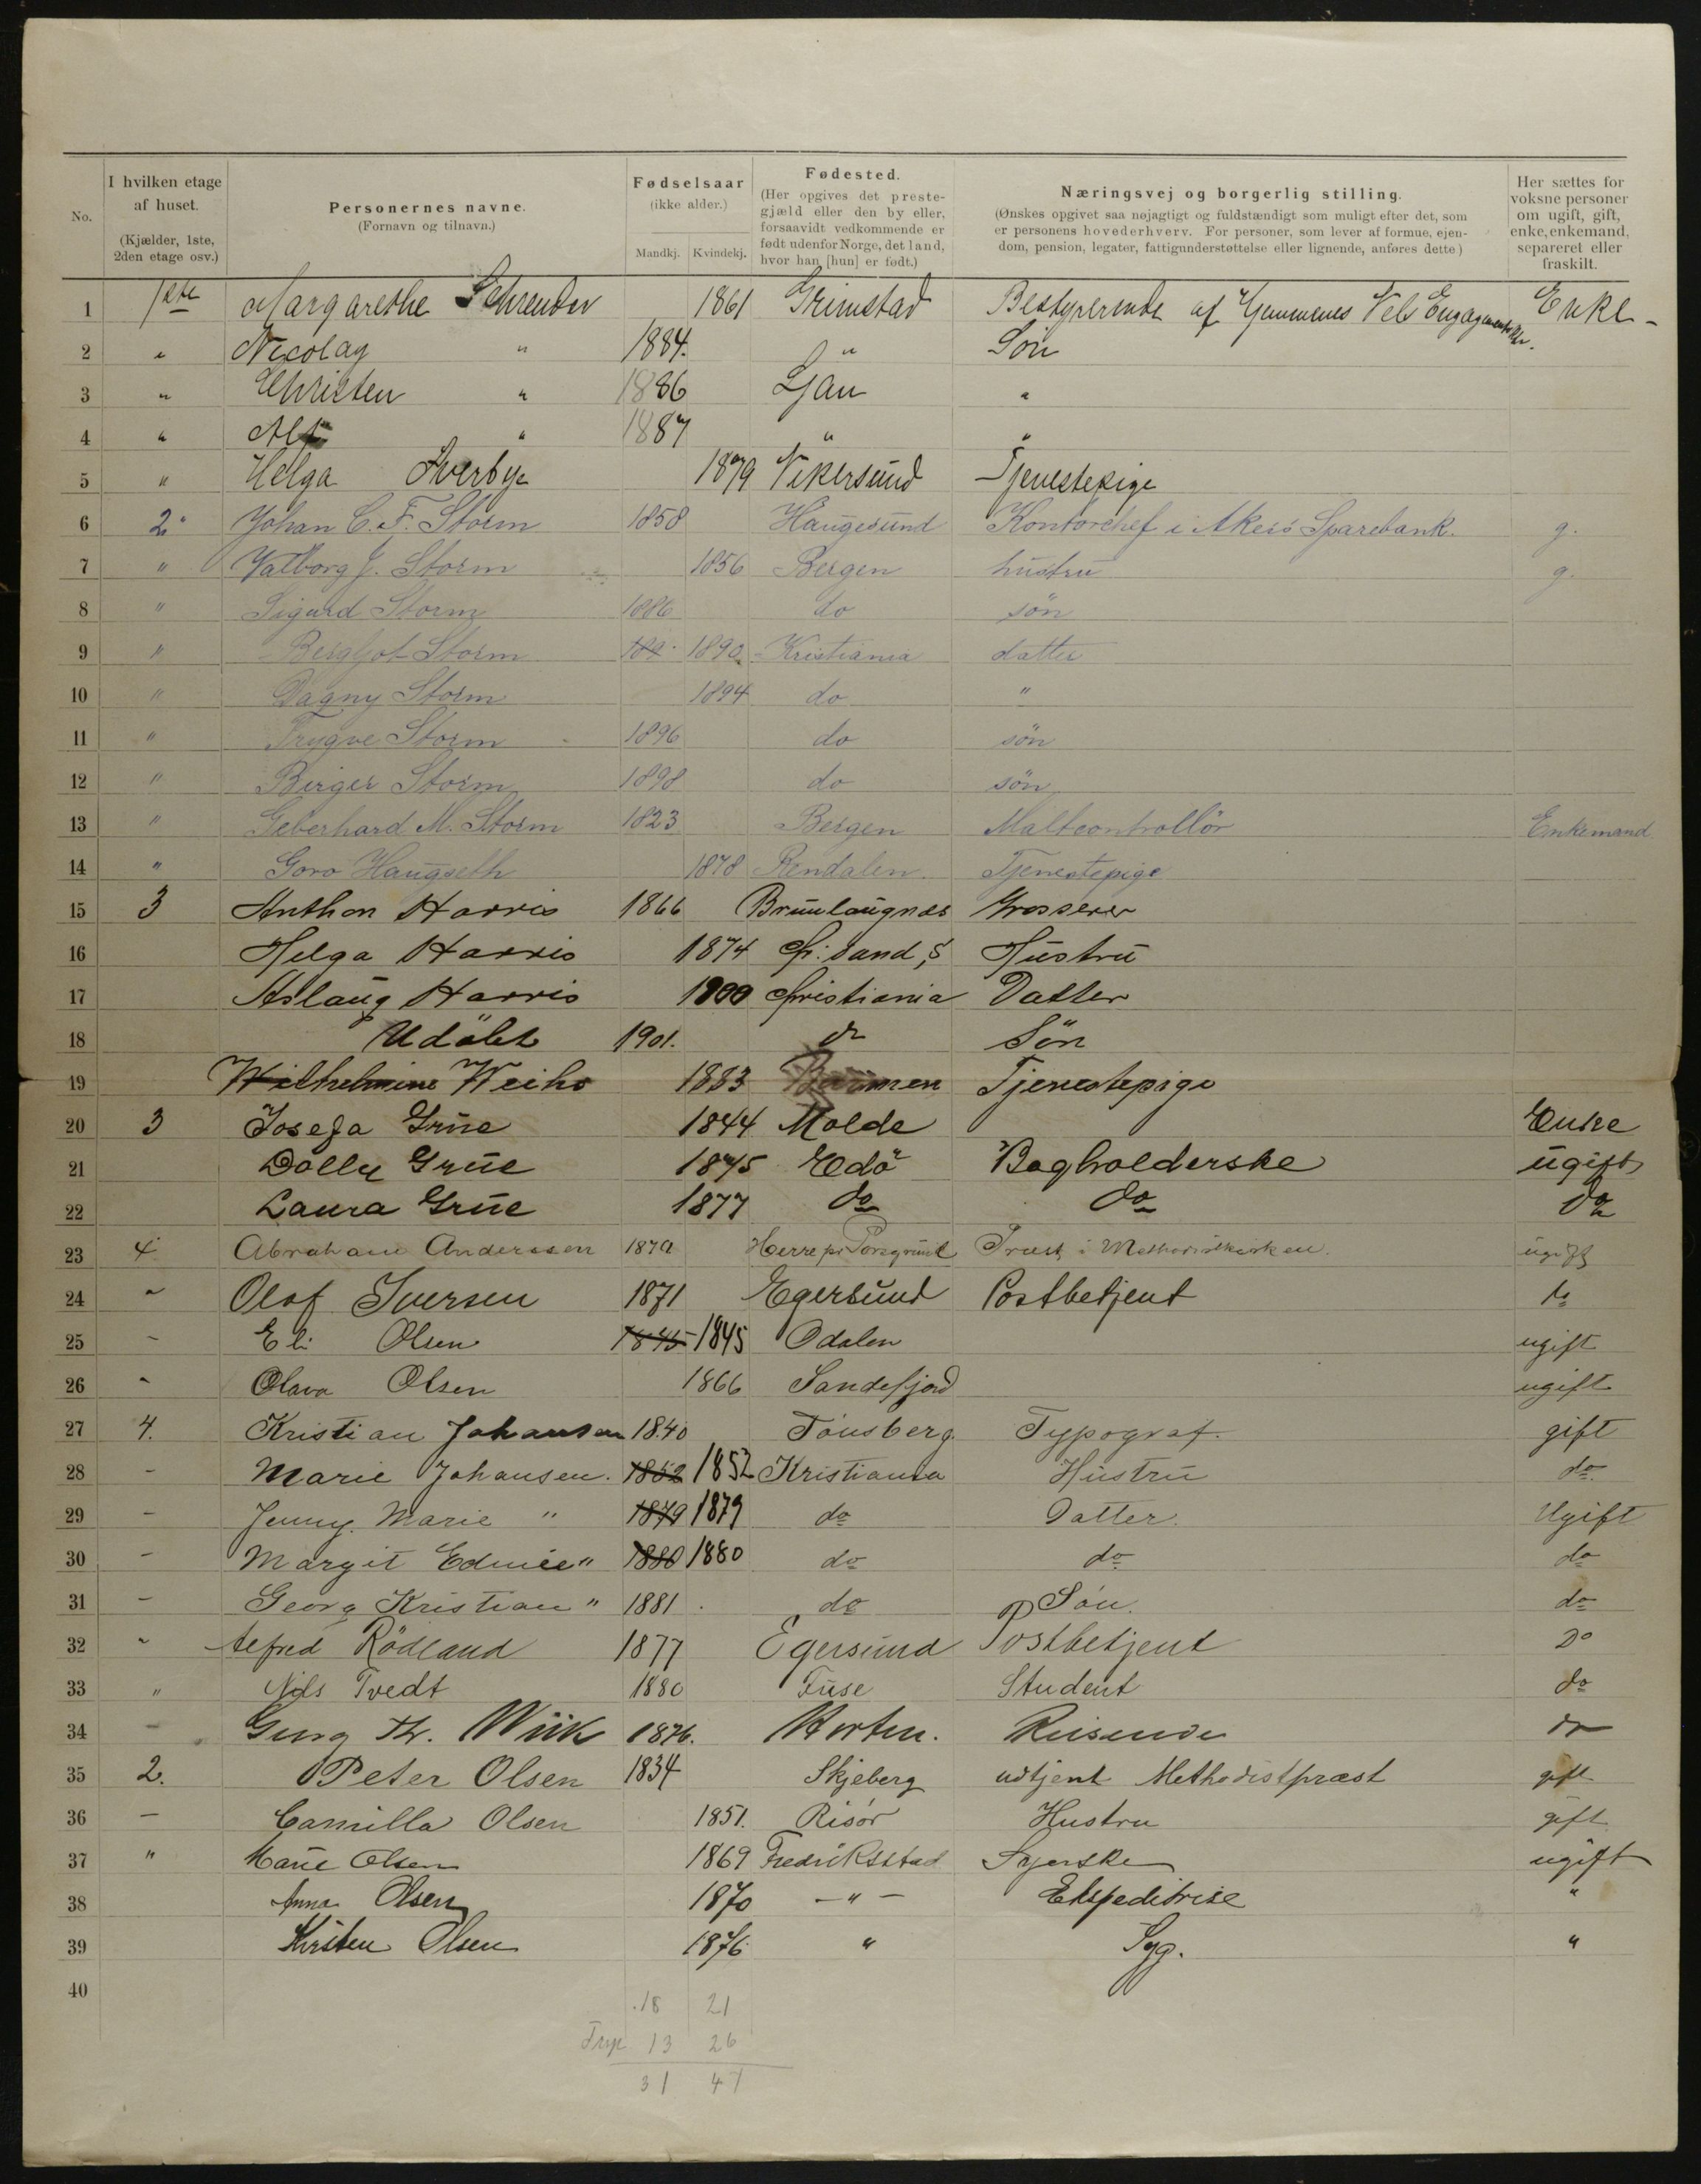 No.
I hvilken etage af huset. (Kjælder, 1ste, 2den etage osv.)
Personernes navne. (Fornavn og tilnavn.)
Fødselsaar (ikke alder.) Mandkj. Kvindekj.
Fødested. (Her opgives det prestegjæld eller den by eller, forsaavidt vedkommende er født udenfor Norge, det land, hvor han [hun] er født.)
Næringsvej og borgerlig stilling. (Ønskes opgivet saa nøjagtigt og fuldstændigt som muligt efter det, som er personens hovederhverv. For personer, som lever af formue, ejendom, pension, legater, fattigunderstøttelse eller lignende, anføres dette)
Her sættes for voksne personer om ugift, gift, enke, enkemand, separeret eller fraskilt.
1 1ste Margarethe 1861 Grimstad Bestyrerinde af Hjemmenes Vel Enke
2 " Nicolay " 1884. " Søn
3 " Christen " 1886 Ljan "
4 " Alf " 1887 " "
5 " Helga Sverbye 1879 Vikersund Tjenestepige
6 2. Johan C. F. Storm 1858 Haugesund Kontorchef i Akers Sparebank. g.
7 " Valborg J. Storm 1856 Bergen hustru g.
8 " Sigurd Storm 1886 do søn
9 " Bergljot Storm 189 1890 Kristiania datter
10 " Dagny Storm 1894 do "
11 " Trygve Storm 1896 do søn
12 " Birger Storm 1898 do søn
13 " Geberhard M. Storm 1823 Bergen Maltcontrollör Enkemand
14 " Goro Haugseth 1878 Rendalen. Tjenestepige
15 3 Anthon Harris 1866 Brunlaugnæs Grosserer
16 Helga Harris 1874 Chr. sand, S Hustru
17 Aslaug Harris 1900 Christiania Datter
18 Udöbt 1901. do Sön
19 Wilhelmine Weiho 1883 Tjenestepige
20 3 Josefa Grüe 1844 Molde Enke
21 Dolly Grüe 1875 Edö Bogholderske ugift
22 Laura Grüe 1877 do do do
23 4 Abraham Anderssen 1879 Herre pr Porsgrund Præst i Methodistkirken. ugift
24 " Olaf Iversen 1871 Egersund Postbetjent do
25 - Eli Olsen 1845 1845 Odalen ugift
26 " Olava Olsen 1866 Sandefjord ugift
27 4. Kristian Johansen 1840 Tønsberg. Typograf. gift
28 - Marie Johansen. 1852 1852 Kristiania Hustru do
29 - Jenny Marie " 1879 1879 do Datter. Ugift
30 - Margit Edmée " 1880 1880 do do do
31 - Georg Kristian " 1881 do Søn. do
32 " Alfred Rödland 1877 Egersund Postbetjent Do
33 " Nils Tvedt 1880 Fuse Student do
34 - Georg Th. Wiik 1876. Horten. Reisende do
35 2. Peter Olsen 1834 Skjeberg udtjent Methodistpræst gift
36 - Camilla Olsen 1851. Risør Hustru gift
37 " Marie Olsen 1869 Fredriksstad Syerske ugift
38 Anna Olsen 1870 - " - Ekspeditrise "
39 Kirsten Olsen 1876 " Syg. "
40
18 21
13 26
31 47